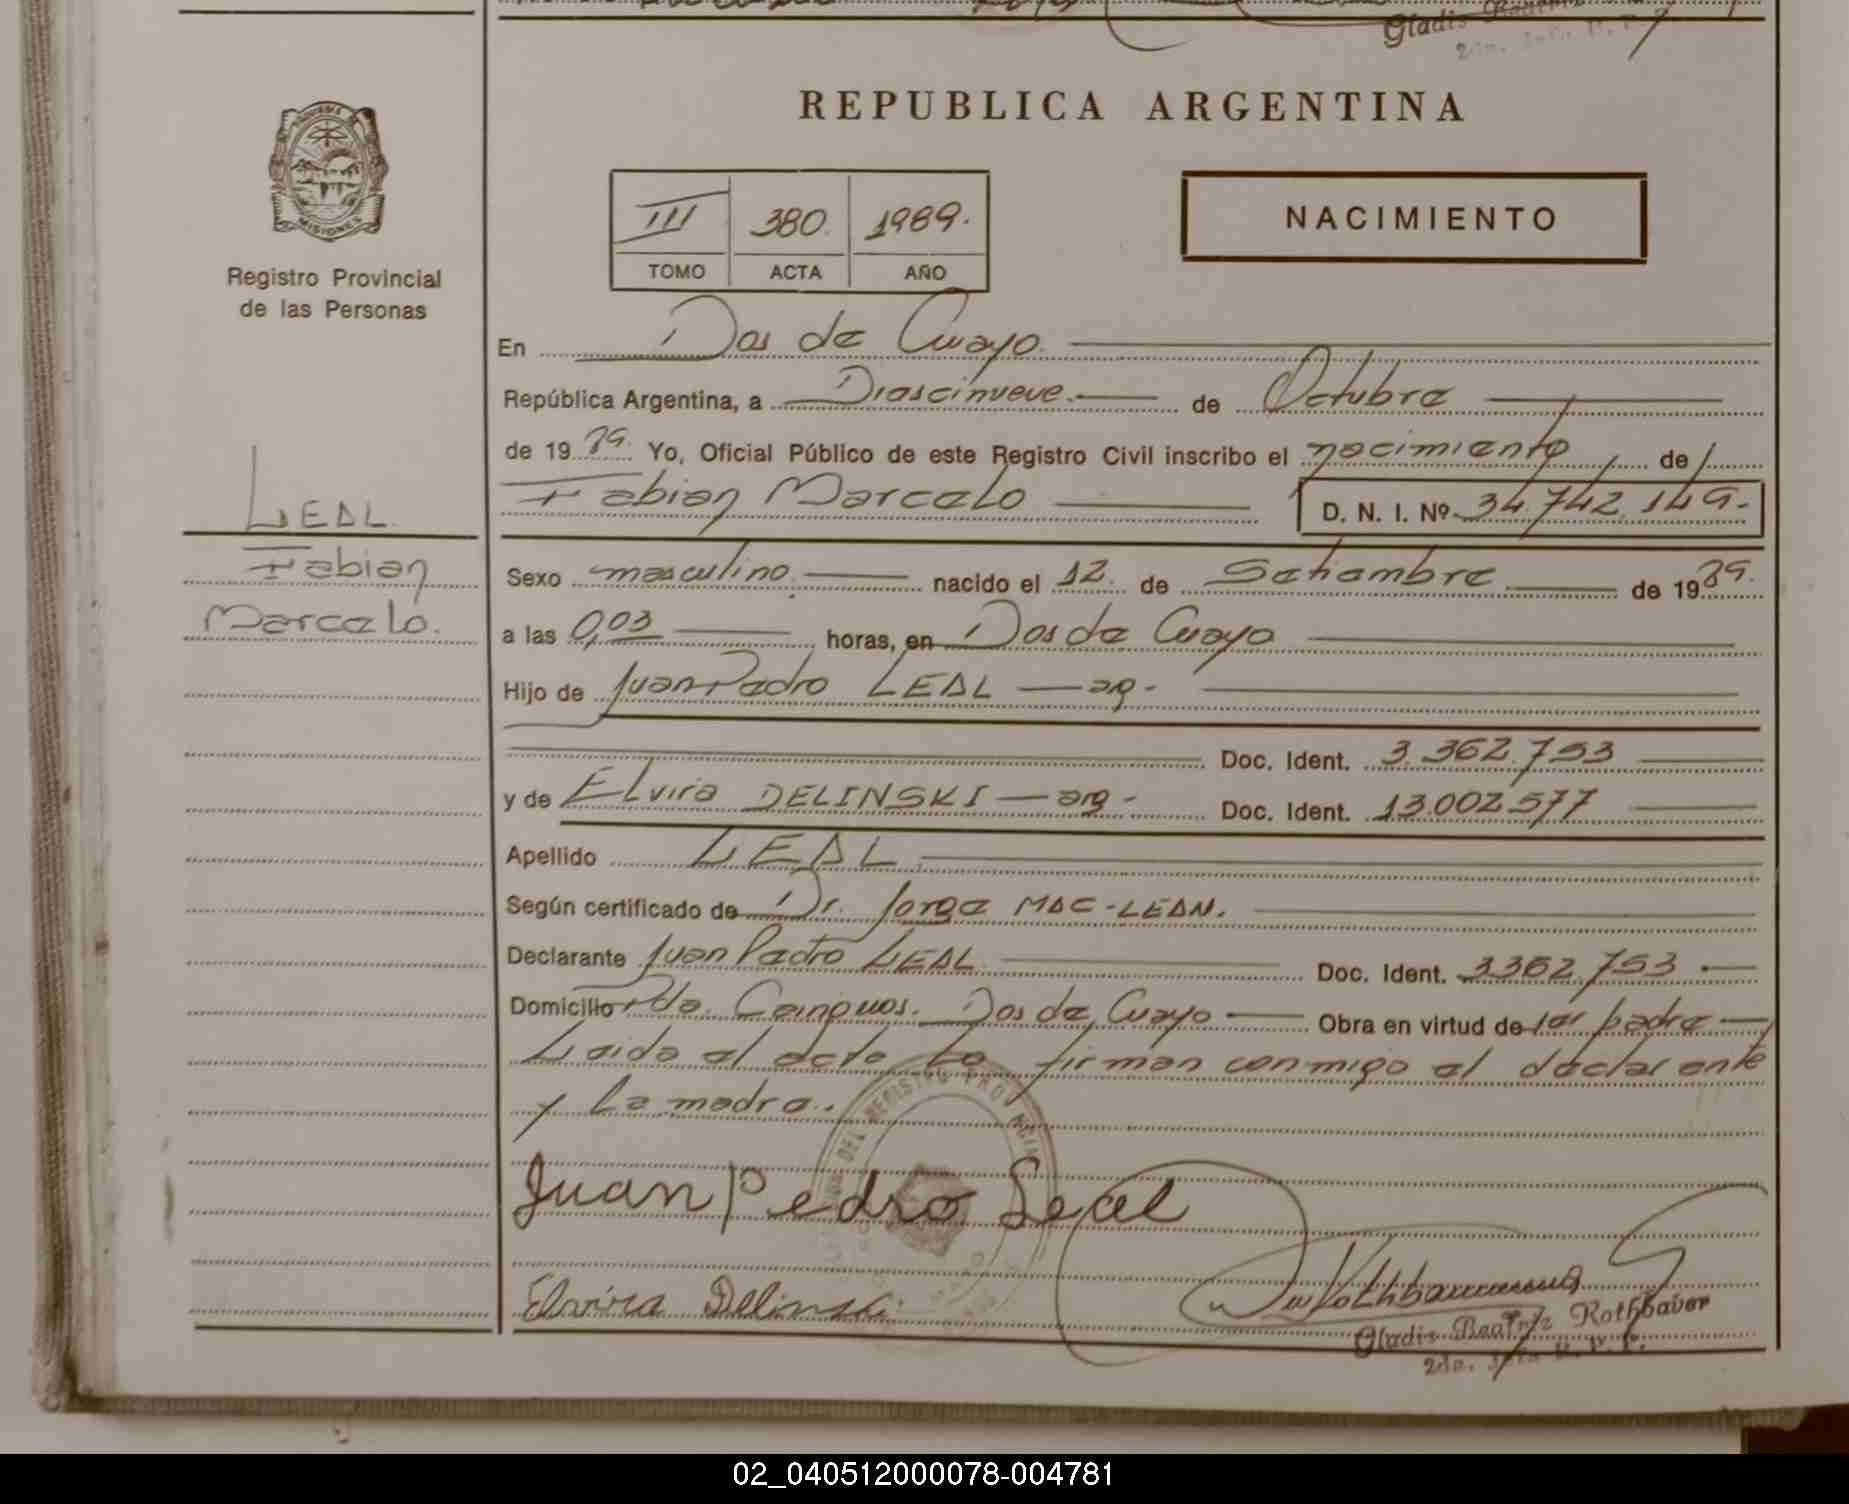 Gladis
REPUBLICA ARGENTINA
MISIONES
Registro Provincial
de las Personas
III 380. 1989.
TOMO ACTA AÑO
NACIMIENTO
En Dos de Mayo.
República Argentina, a Diescinueve. de Octubre
de 19 89. Yo, Oficial Público de este Registro Civil inscribo el nacimiento de
Fabian Marcelo D. N. I. Nº 34.742.149.-
LEAL
Fabian
Marcelo.
Sexo masculino. nacido el 12. de Setiembre de 19 89.
a las 0,03 horas, en Dos de Mayo
Hijo de Juan Pedro LEAL — arg.-
Doc. Ident. 3.362.753
y de Elvira DELINSKI — arg.- Doc. Ident. 13.002.577
Apellido LEAL
Según certificado de Dr. Jorge MAC-LEAN.
Declarante Juan Pedro LEAL. Doc. Ident. 3362.753.
Domicilio Pda. Cainguas. Dos de Mayo Obra en virtud de ser padre
Leida el acta la firman conmigo el declarante
y la madre.
Juan Pedro Leal
Elvira Delinski
Gladis Beatriz Rothbauer
2da. Jefa R. P. P.
02_040512000078-004781